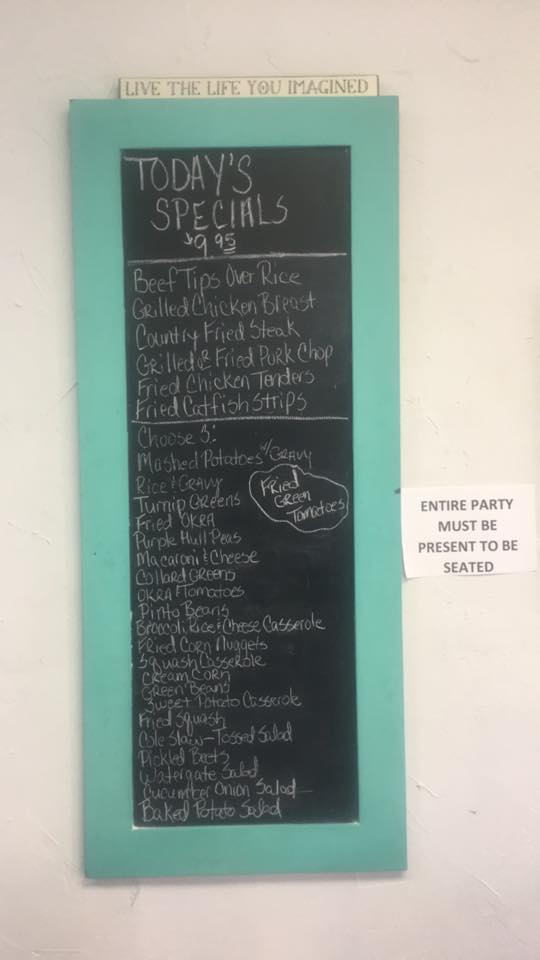 LIVE THE LIFE YOU IMAGINED
TODAY'S
SPECIALS
$9.95
Beef Tips Over Rice
Grilled Chicken Breast
Country Fried Steak
Grilled & Fried Pork Chop
Fried Chicken Tenders
Fried Catfish Strips
Choose 3:
Mashed Potatoes w/ GRAVY
Rice & GRAVY
Turnip GREENS
Fried OKRA
Purple Hull Peas
Macaroni & Cheese
Collard GREENS
OKRA & Tomatoes
Pinto Beans
Broccoli, Rice & Cheese Casserole
Fried Corn Nuggets
Squash Casserole
CREAM CORN
Green Beans
Sweet Potato Casserole
Fried Squash
Cole Slaw - Tossed Salad
Pickled Beets
Watergate Salad
Cucumber Onion Salad
Baked Potato Salad
Fried
GREEN
Tomatoes
ENTIRE PARTY
MUST BE
PRESENT TO BE
SEATED